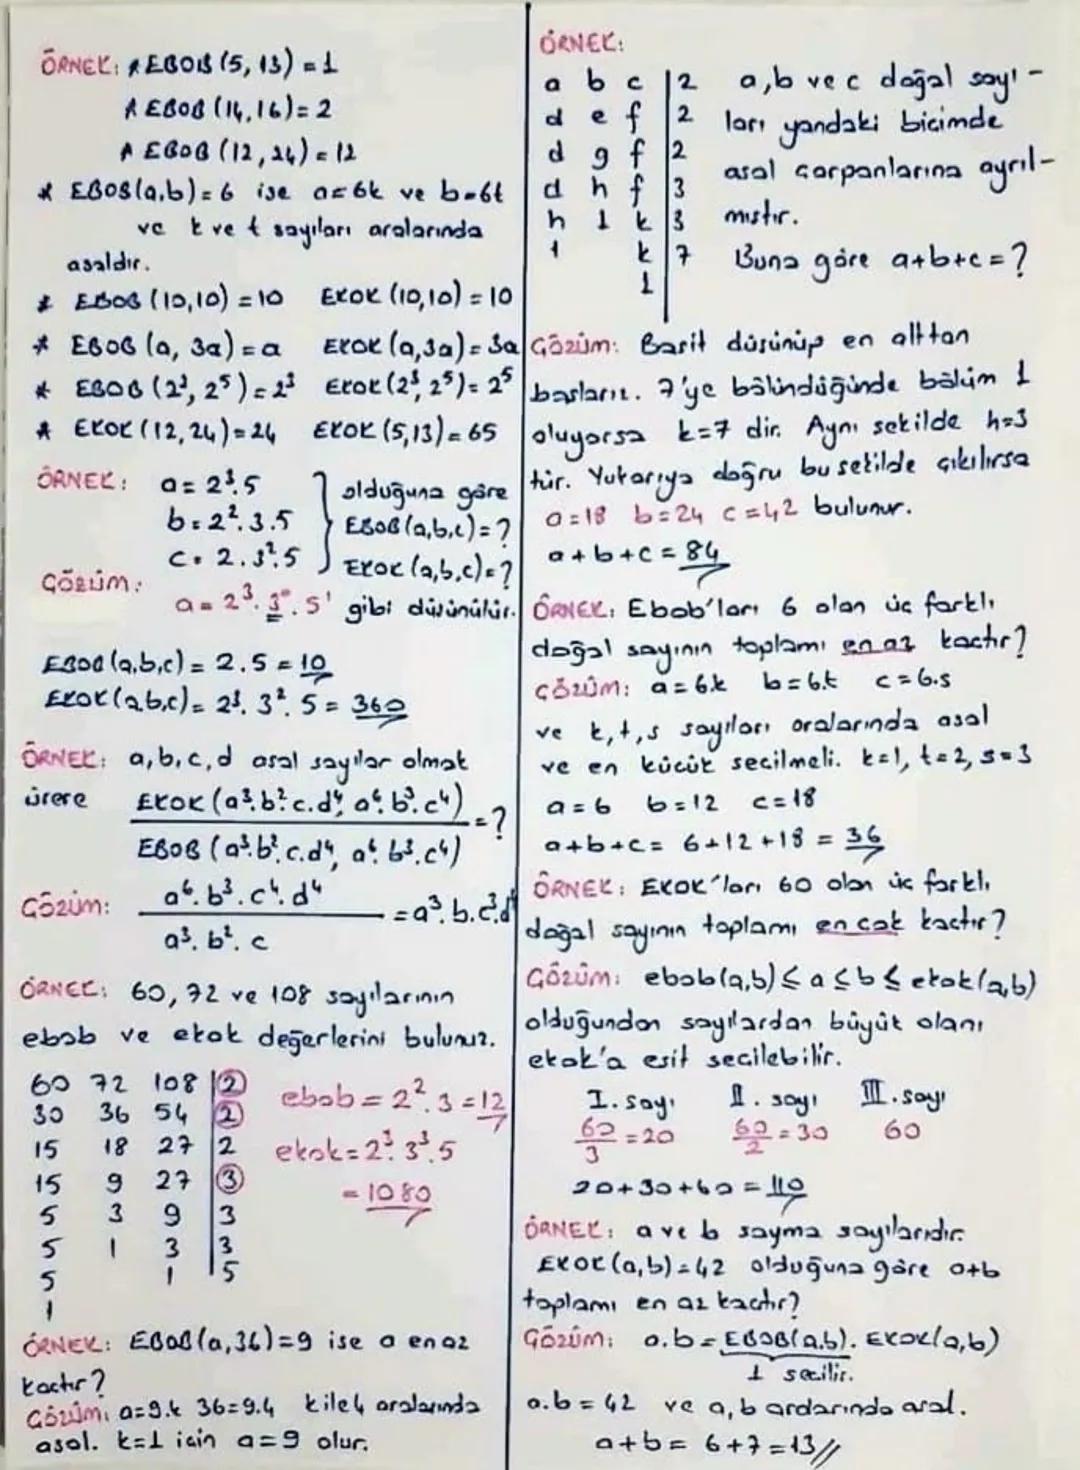 ÖRNEK: * EBOB (5, 13) = 1
* EBOB (14, 16) = 2
* EBOB (12, 24) = 12
* EBOB(a,b) = 6 ise a=6k ve b=6t
ve k ve t sayıları aralarında
asaldır.
* EBOB (10,10) = 10 EKOK (10,10) = 10
* EBOB (a, 3a) = a EKOK (a,3a) = 3a
* EBOB (2³, 2⁵) = 2³ EKOK (2³, 2⁵) = 2⁵
* EKOK (12, 24) = 24 EKOK (5,13) = 65
ÖRNEK: a = 2³.5
b = 2².3.5
c = 2.3².5
olduğuna göre
EBOB(a,b,c) = ?
EKOK (a,b,c) = ?
ÇÖZÜM:
a = 2³.3⁰.5¹ gibi düşünülür.
EBOB (a,b,c) = 2.5 = 10
EKOK (a,b,c) = 2³.3².5 = 360
ÖRNEK: a,b,c,d asal sayılar olmak
üzere EKOK (a³.b².c.d⁴, a⁶.b³.c⁴) = ?
EBOB (a³.b².c.d⁴, a⁶.b³.c⁴)
ÇÖZÜM: a⁶.b³.c⁴.d⁴ = a³.b.c³.d⁴
a³.b².c
ÖRNEK: 60, 72 ve 108 sayılarının
ebob ve ekok değerlerini bulunuz.
60 72 108 | 2
30 36 54 | 2
15 18 27 | 2
15 9 27 | 3
5 3 9 | 3
5 1 3 | 3
5 1 | 5
1
ebob = 2².3 = 12
ekok = 2³.3³.5
= 1080
ÖRNEK: EBOB(a,36) = 9 ise a en az
kaçtır?
Çözüm: a=9.k 36=9.4 k ile 4 aralarında
asal. k=1 için a=9 olur.
ÖRNEK:
a b c | 2
d e f | 2
d g f | 2
d h f | 3
h 1 k | 3
1 k | 7
1
a,b ve c doğal sayı-
ları yandaki biçimde
asal çarpanlarına ayrıl-
mıştır.
Buna göre a+b+c = ?
Çözüm: Basit düşünüp en alttan
başlarız. 7'ye bölündüğünde bölüm 1
oluyorsa k=7 dir. Aynı şekilde h=3
tür. Yukarıya doğru bu şekilde çıkılırsa
a=18 b=24 c=42 bulunur.
a+b+c = 84
ÖRNEK: Ebob'ları 6 olan üç farklı
doğal sayının toplamı en az kaçtır?
ÇÖZÜM: a=6.k b=6.t c=6.s
ve k,t,s sayıları aralarında asal
ve en küçük seçilmeli. k=1, t=2, s=3
a=6 b=12 c=18
a+b+c = 6+12+18 = 36
ÖRNEK: EKOK'ları 60 olan üç farklı
doğal sayının toplamı en çok kaçtır?
ÇÖZÜM: ebob(a,b) ≤ a ≤ b ≤ ekok(a,b)
olduğundan sayılardan büyük olanı
ekok'a eşit seçilebilir.
I. sayı II. sayı III. sayı
60/3 = 20 60/2 = 30 60
20+30+60 = 110
ÖRNEK: a ve b sayma sayılarıdır.
EKOK (a,b) = 42 olduğuna göre a+b
toplamı en az kaçtır?
ÇÖZÜM: a.b = EBOB(a,b). EKOK(a,b)
1 seçilir.
a.b = 42 ve a,b arelarında asal.
a+b = 6+7 = 13//